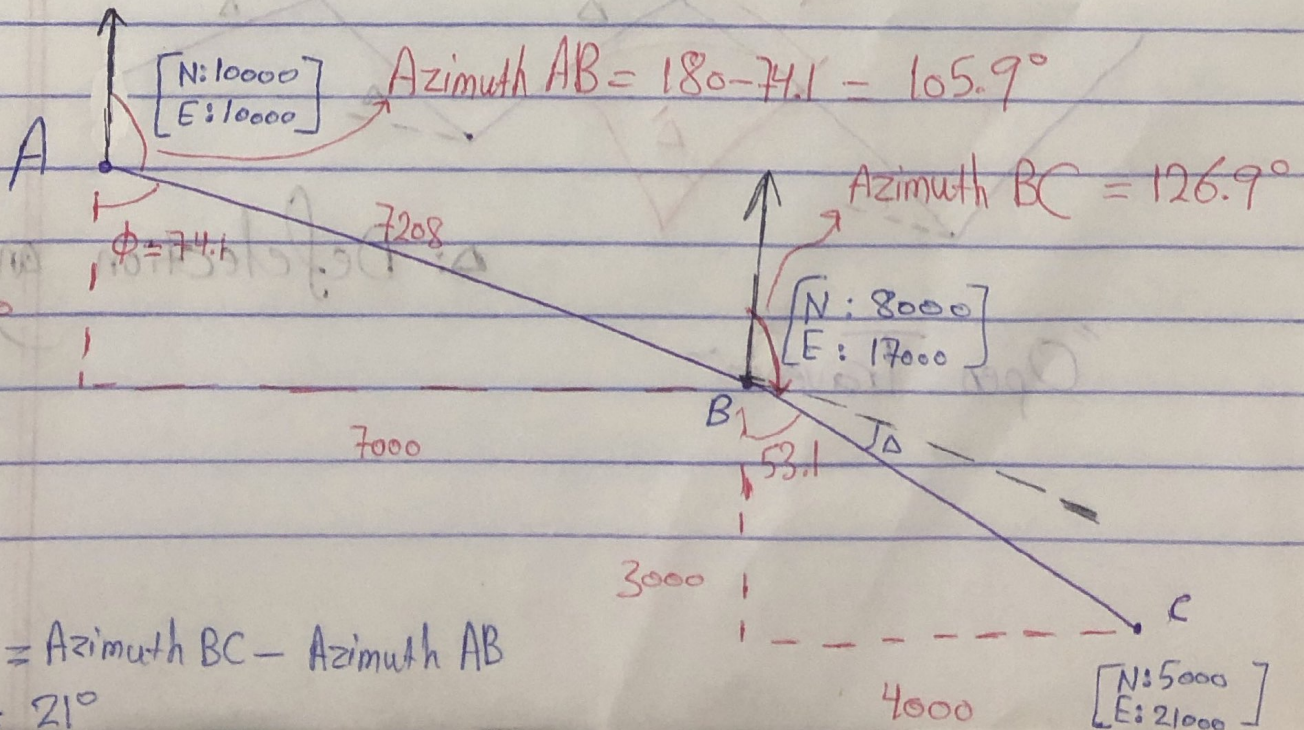 [N:10000]
[E:10000]
Azimuth AB = 180-74.1 = 105.9°
A
Azimuth BC = 126.9°
7208
Φ=74.1
[N: 8000]
[E: 17000]
B
Δ
7000
53.1
3000
C
= Azimuth BC - Azimuth AB
21°
4000
[N:5000]
[E:21000]